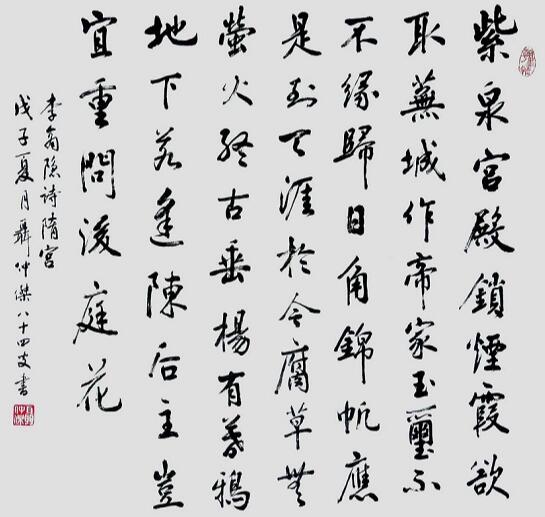 紫泉宮殿鎖煙霞欲
取蕪城作帝家玉璽不
不緣歸日角錦帆應
是到天涯於今腐草無
螢火終古垂楊有暮鴉
地下若逢陳后主豈
宜重問後庭花
李商隐詩隋宮
戊子夏月聶仲傑八十四書